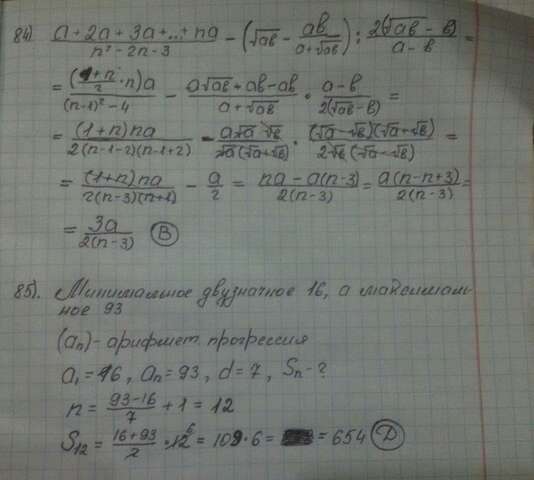 84) (a + 2a + 3a + ... + na)/(n² - 2n - 3) - (√ab - ab/(a + √ab)) : 2(√ab - b)/(a - b) =
= ((1+n)/2 · n)a/((n-1)² - 4) - (a√ab + ab - ab)/(a + √ab) · (a - b)/(2(√ab - b)) =
= (1+n)na/(2(n-1-2)(n-1+2)) - a√a √b/(√a(√a+√b)) · (√a-√b)(√a+√b)/(2√b(√a-√b)) =
= (1+n)na/(2(n-3)(n+1)) - a/2 = (na - a(n-3))/(2(n-3)) = a(n-n+3)/(2(n-3)) =
= 3a/(2(n-3)) (B)
85). Минимальное двузначное 16, а максималь-
ное 93
(aₙ) - арифмет. прогрессия
a₁ = 16, aₙ = 93, d = 7, Sₙ - ?
n = (93-16)/7 + 1 = 12
S₁₂ = (16+93)/2 · 12 6 = 109 · 6 = = 654 (D)